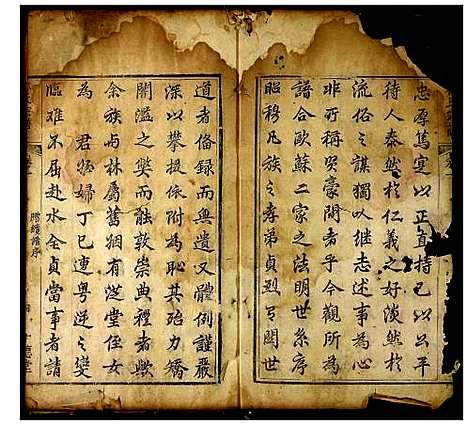 忠厚篤寔以正直持己以公平
待人泰然於仁義之好淡然於
流俗之謀獨以继志述事為心
非所稱賢豪間者乎今觀所為
譜合歐蘇二家之法明世系序
昭穆凡族之孝弟貞烈有関世
道者俻録而無遺又體例謹嚴
深以攀援依附為恥其殆力矯
闇濫之獘而能敦崇典禮者歟
余族與林属舊姻有淑堂侄女
為君猶婦丁巳連粤逆之變
臨难不屈赴水全貞當事者請